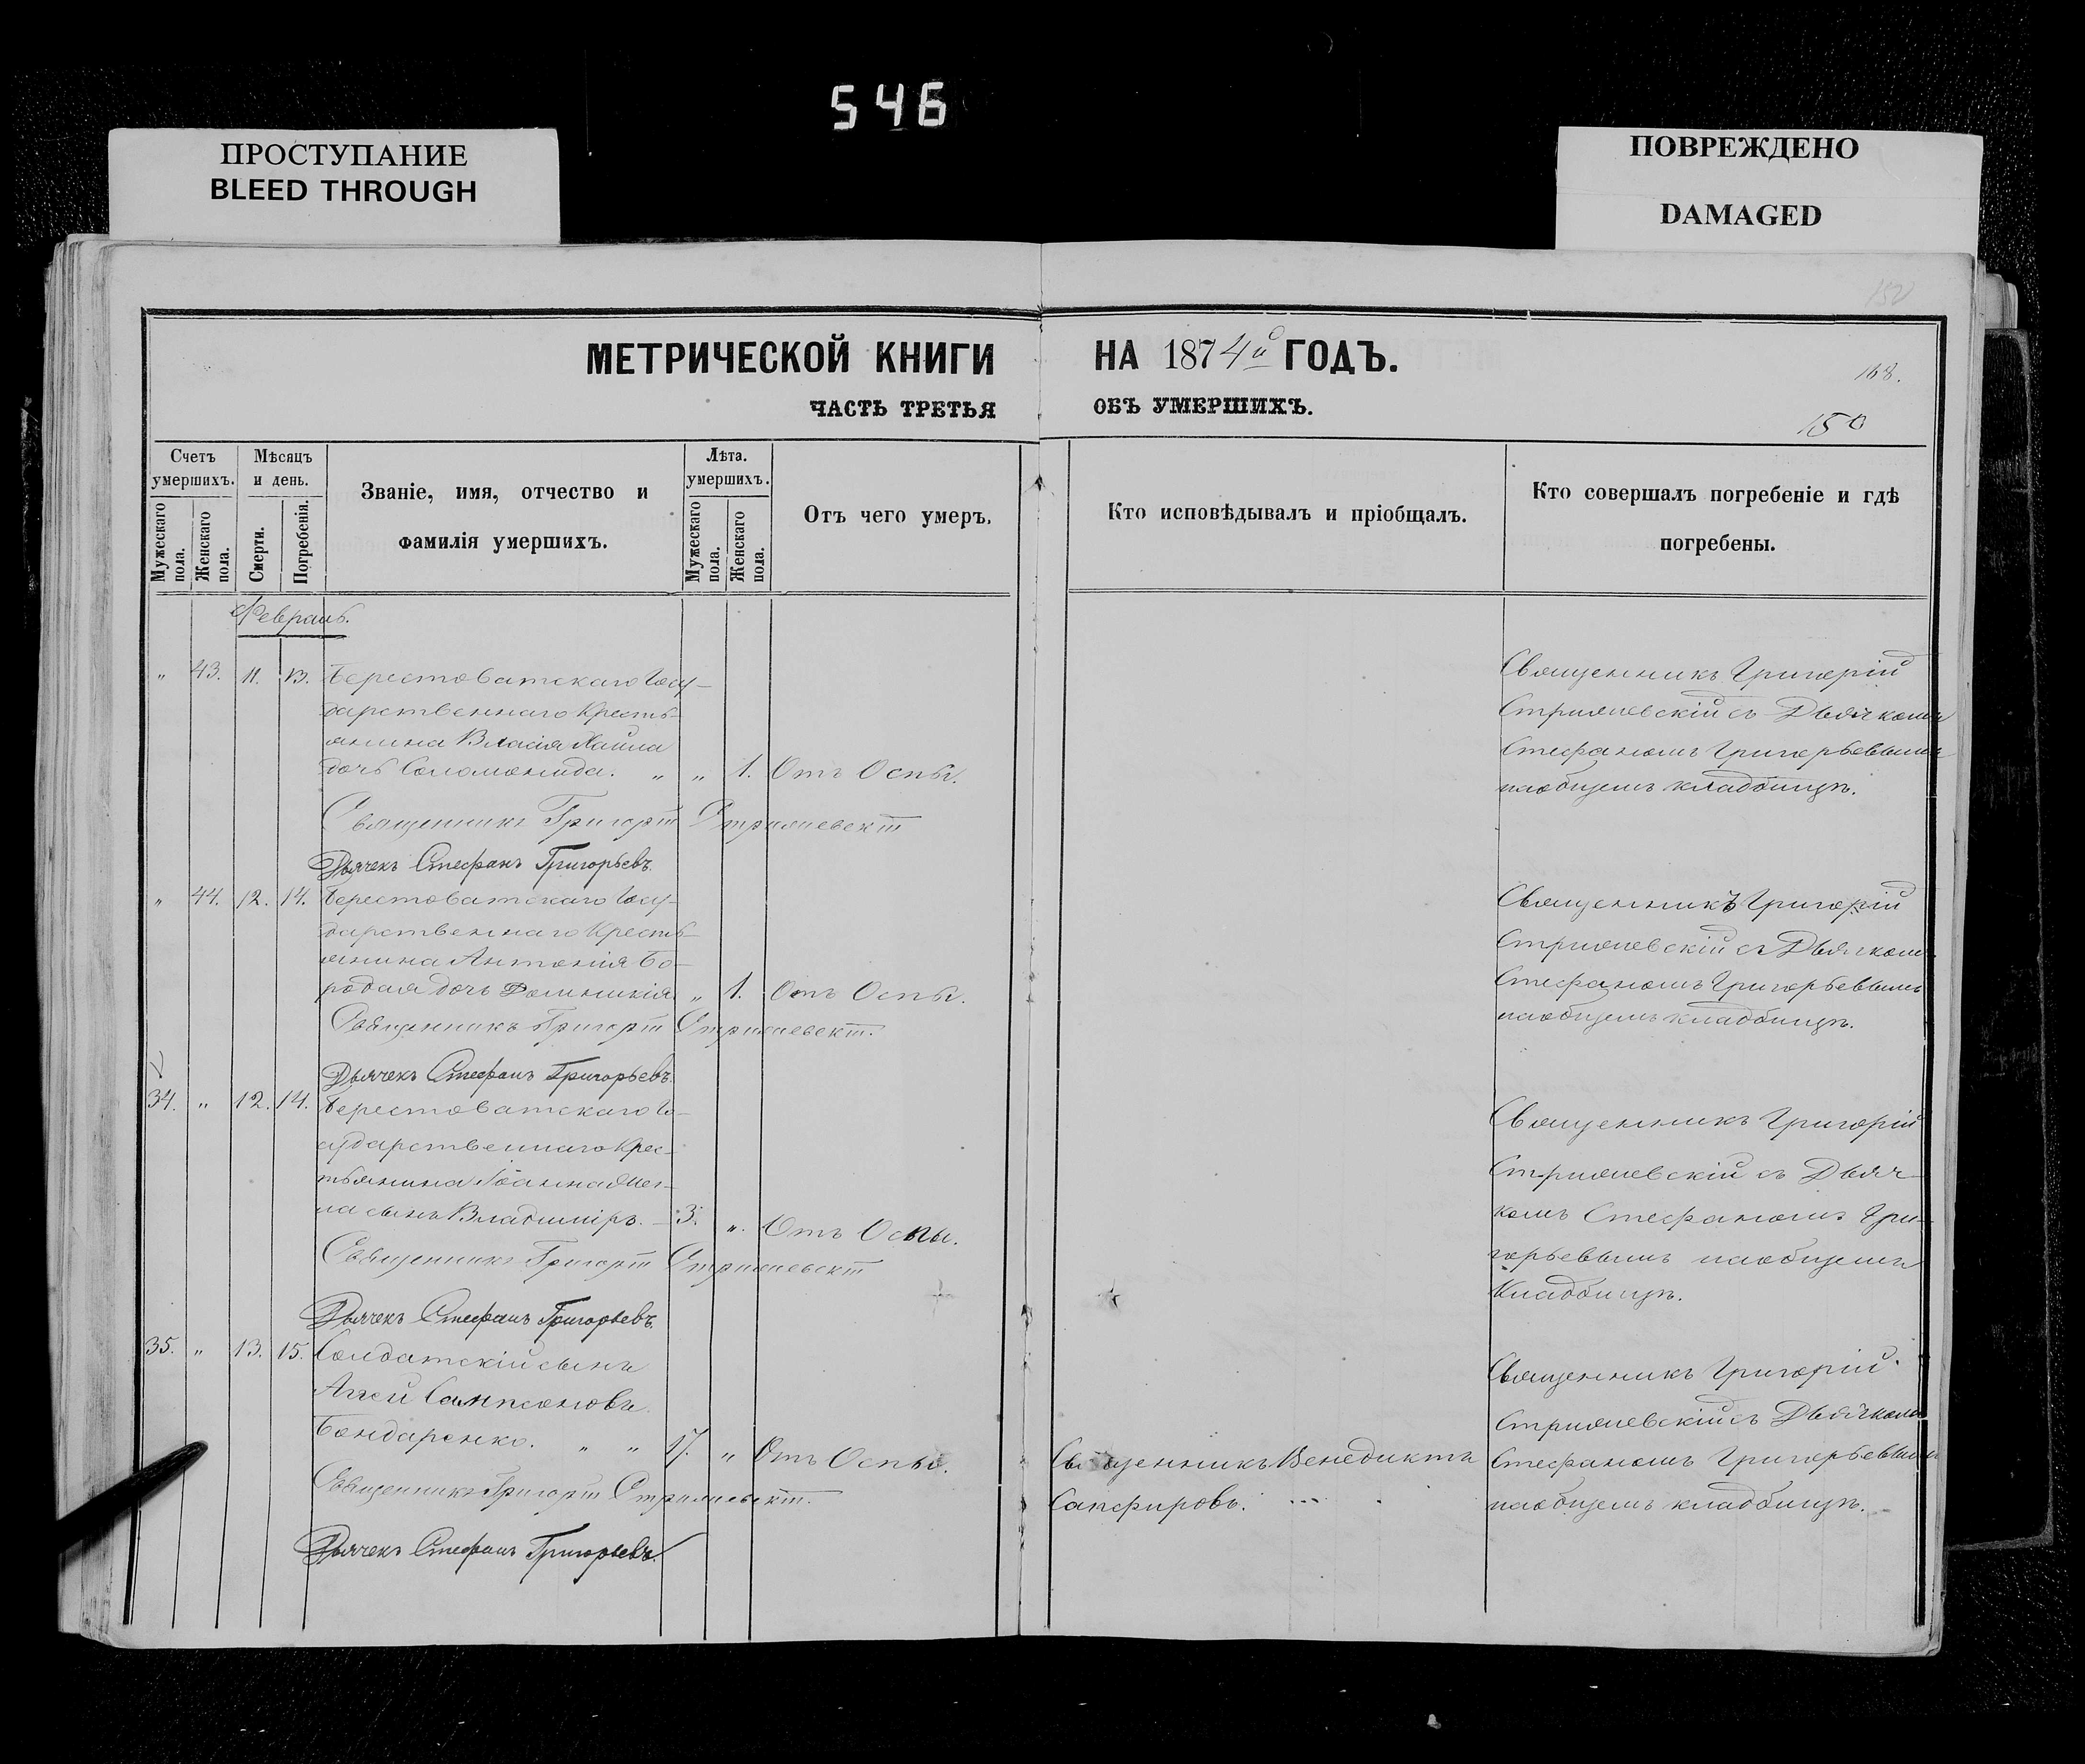 546
ПРОСТУПАНИЕ
BLEED THROUGH
ПОВРЕЖДЕНО
DAMAGED
МЕТРИЧЕСКОЙ КНИГИ НА 1874й ГОДЪ.
168.
ЧАСТЬ ТРЕТЬЯ ОБЪ УМЕРШИХЪ.
150
Счетъ умершихъ.
Мужескаго пола.
Женскаго пола.
Мѣсяцъ и день.
Смерти.
Погребенія.
Званіе, имя, отчество и
фамилія умершихъ.
Лѣта. умершихъ.
Мужескаго пола.
Женскаго пола.
Отъ чего умеръ.
Кто исповѣдывалъ и пріобщалъ.
Кто совершалъ погребеніе и гдѣ
погребены.
Февраль.
" 43. 11. 13. Берестоватскаго Госу-
дарственнаго Кресть-
янина Власія
дочь Соломонида. " " 1. Отъ Оспы.
Священникъ Григорій
съ Дьячкомъ
Стефаномъ Григорьевымъ
на общемъ кладбищѣ.
Священникъ Григорій
Дьячекъ Стефанъ Григорьевъ.
" 44. 12. 14. Берестоватскаго Госу-
дарственнаго Кресть-
янина Антонія Бо-
родая дочь Домникія " 1. Отъ Оспы.
Священникъ Григорій
съ Дьячкомъ
Стефаномъ Григорьевымъ
на общемъ кладбищѣ.
Священникъ Григорій
Дьячекъ Стефанъ Григорьевъ.
34. " 12. 14. Берестоватскаго Го-
сударственнаго Крес-
тьянина Іоанна
сынъ Владиміръ. 3. ". Отъ Оспы.
Священникъ Григорій
съ Дьяч-
комъ Стефаномъ Гри-
горьевымъ на общемъ
Кладбищѣ.
Священникъ Григорій
Дьячекъ Стефанъ Григорьевъ.
35. " 13. 15. Солдатскій сынъ
Аггей Сампсоновъ
Бондаренко. " " 17. " Отъ Оспы.
Священникъ Венедиктъ
Сапфировъ.
Священникъ Григорій
съ Дьячкомъ
Стефаномъ Григорьевымъ
на общемъ кладбищѣ.
Священникъ Григорій
Дьячекъ Стефанъ Григорьевъ.